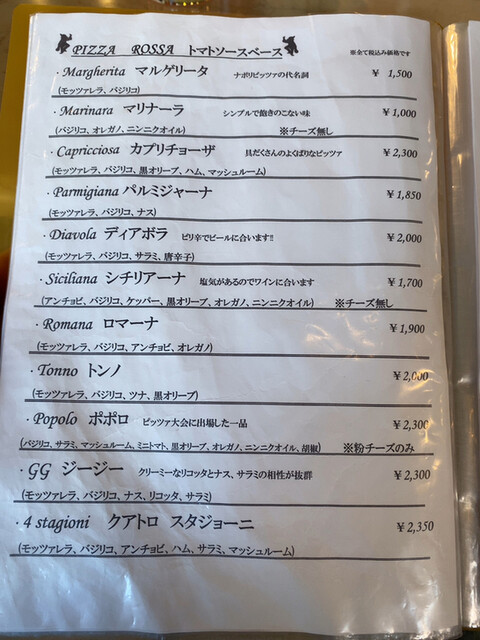 PIZZA ROSSA トマトソースベース ※全て税込み価格です
・Margherita マルゲリータ ナポリピッツァの代名詞 ￥ 1,500
(モッツァレラ、バジリコ)
・Marinara マリナーラ シンプルで飽きのこない味 ￥1,000
(バジリコ、オレガノ、ニンニクオイル) ※チーズ無し
・Capricciosa カプリチョーザ 具だくさんのよくばりなピッツァ ￥2,300
(モッツァレラ、バジリコ、黒オリーブ、ハム、マッシュルーム)
・Parmigiana パルミジャーナ ￥1,850
(モッツァレラ、バジリコ、ナス)
・Diavola ディアボラ ピリ辛でビールに合います!! ￥2,000
(モッツァレラ、バジリコ、サラミ、唐辛子)
・Siciliana シチリアーナ 塩気があるのでワインに合います ￥1,700
(アンチョビ、バジリコ、ケッパー、黒オリーブ、オレガノ、ニンニクオイル) ※チーズ無し
・Romana ロマーナ ￥1,900
(モッツァレラ、バジリコ、アンチョビ、オレガノ)
・Tonno トンノ ￥2,000
(モッツァレラ、バジリコ、ツナ、黒オリーブ)
・Popolo ポポロ ピッツァ大会に出場した一品 ￥2,300
(バジリコ、サラミ、マッシュルーム、ミニトマト、黒オリーブ、オレガノ、ニンニクオイル、胡椒) ※粉チーズのみ
・GG ジージー クリーミーなリコッタとナス、サラミの相性が抜群 ￥2,300
(モッツァレラ、バジリコ、ナス、リコッタ、サラミ)
・4 stagioni クアトロ スタジョーニ ￥2,350
(モッツァレラ、バジリコ、アンチョビ、ハム、サラミ、マッシュルーム)